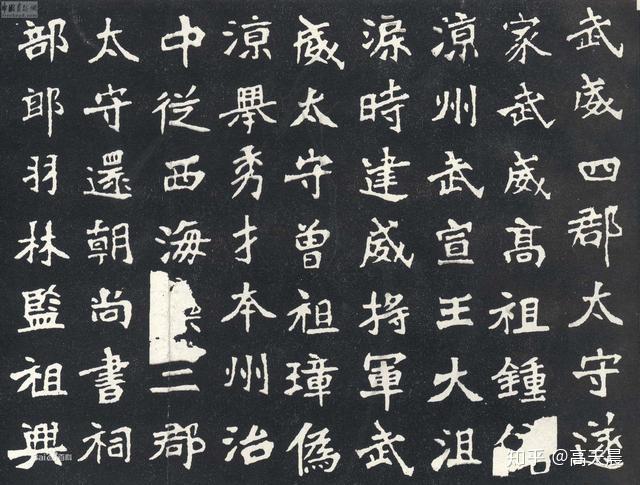 武威四郡太守遂
家武威高祖鍾
涼州武宣王大沮
渠時建威将軍武
威太守曾祖璋偽
涼舉秀才本州治
中從西海二郡
太守還朝尚書祠
部郎羽林監祖興
知乎 @高天晨